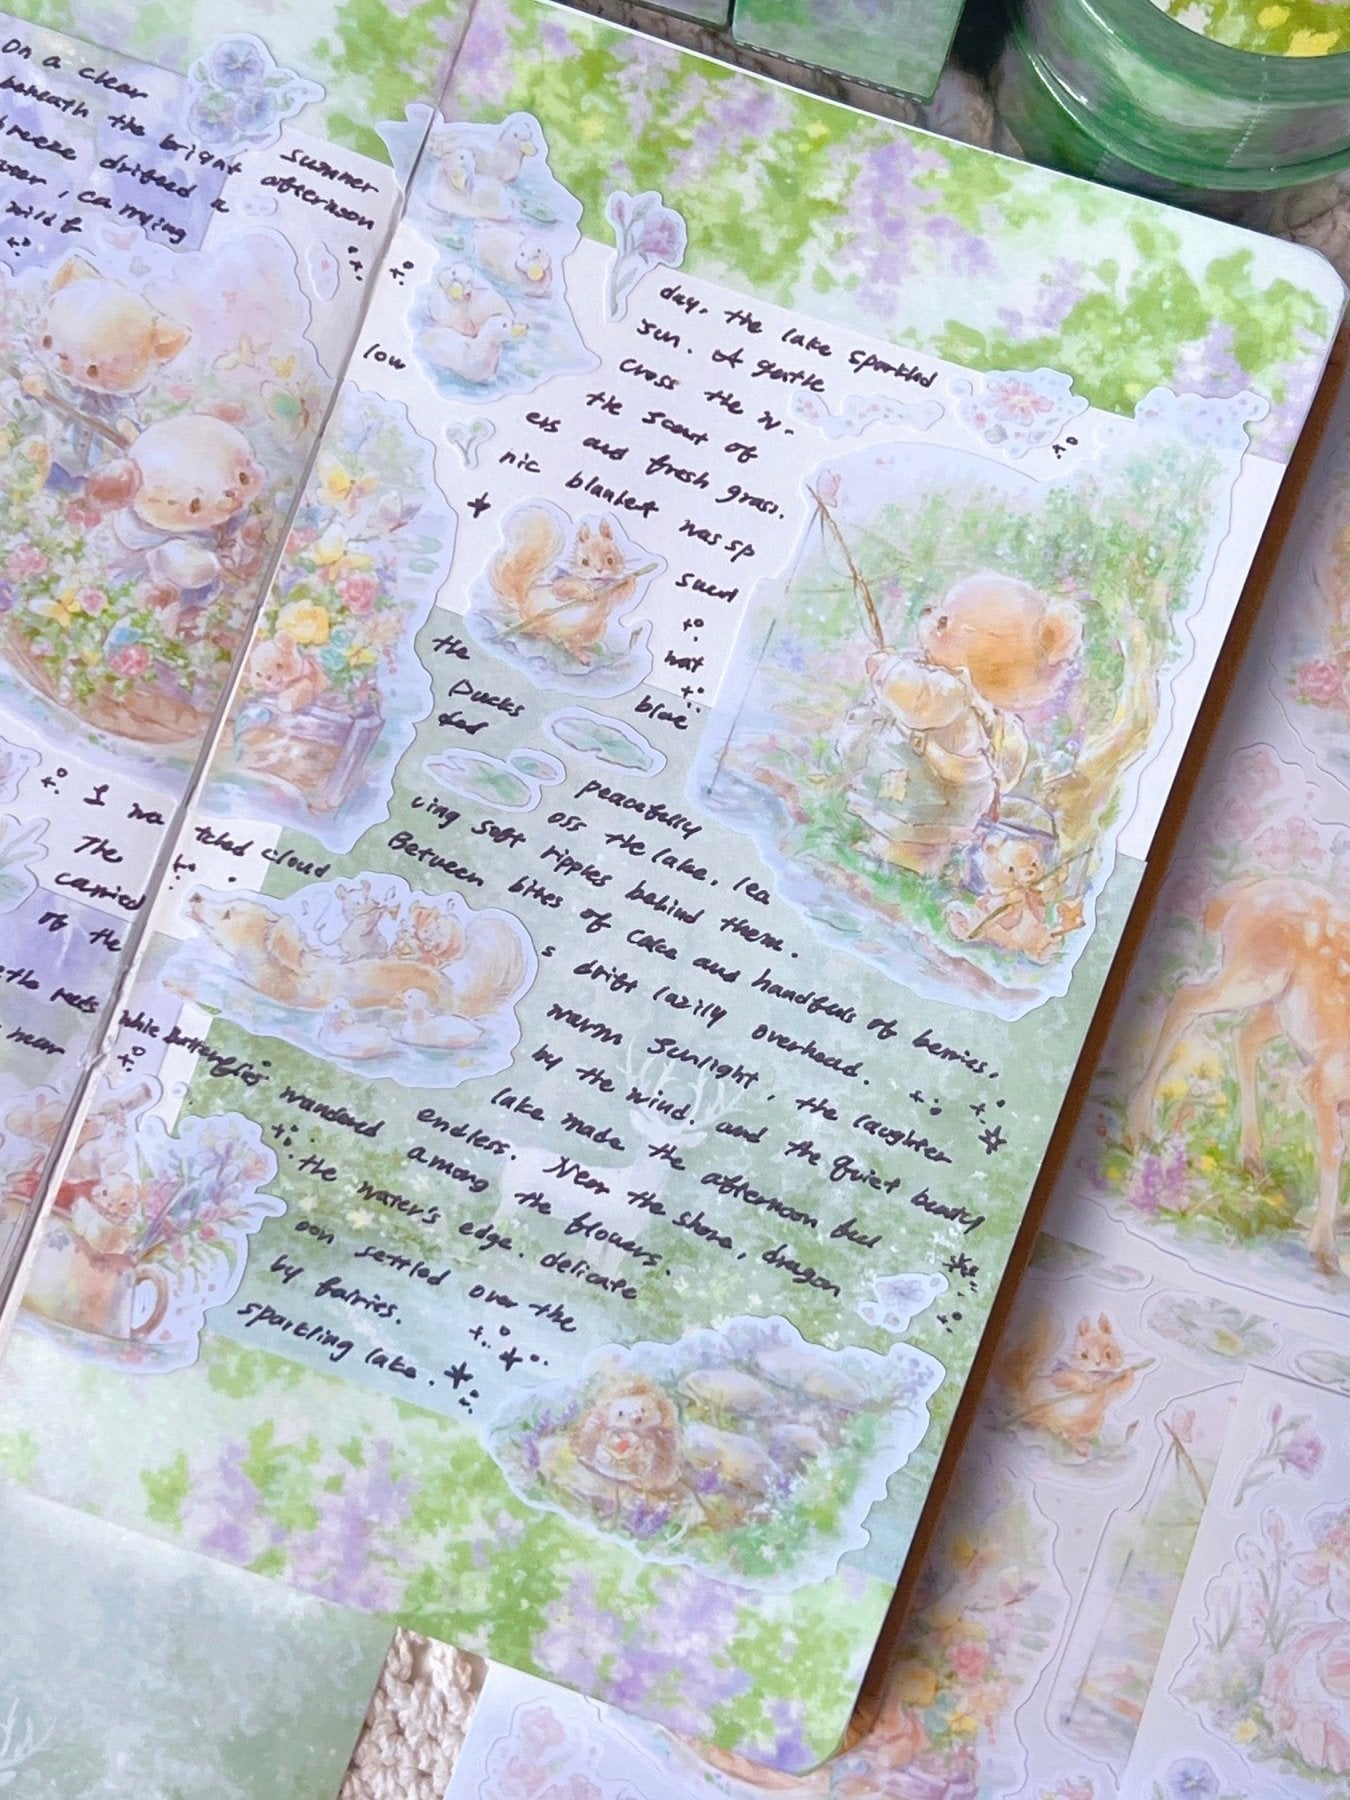 On a clear summer day, the lake sparkled
beneath the bright afternoon sun. A gentle
breeze drifted a cross the w-
ater, carrying the scent of
wildf low ers and fresh grass.
nic blanket was sp
sweet
the wat
Ducks blue
peacefully
oss the lake, lea
ving soft ripples behind them.
Between bites of cake and handfuls of berries,
I wa tched cloud s drift lazily overhead.
The warm sunlight, the laughter
carried by the wind, and the quiet beauty
of the lake made the afternoon feel
endless. Near the shore, dragon
the reeds while Butterflies wandered among the flowers.
near the water's edge. delicate
oon settled over the
by fairies.
sparkling lake.